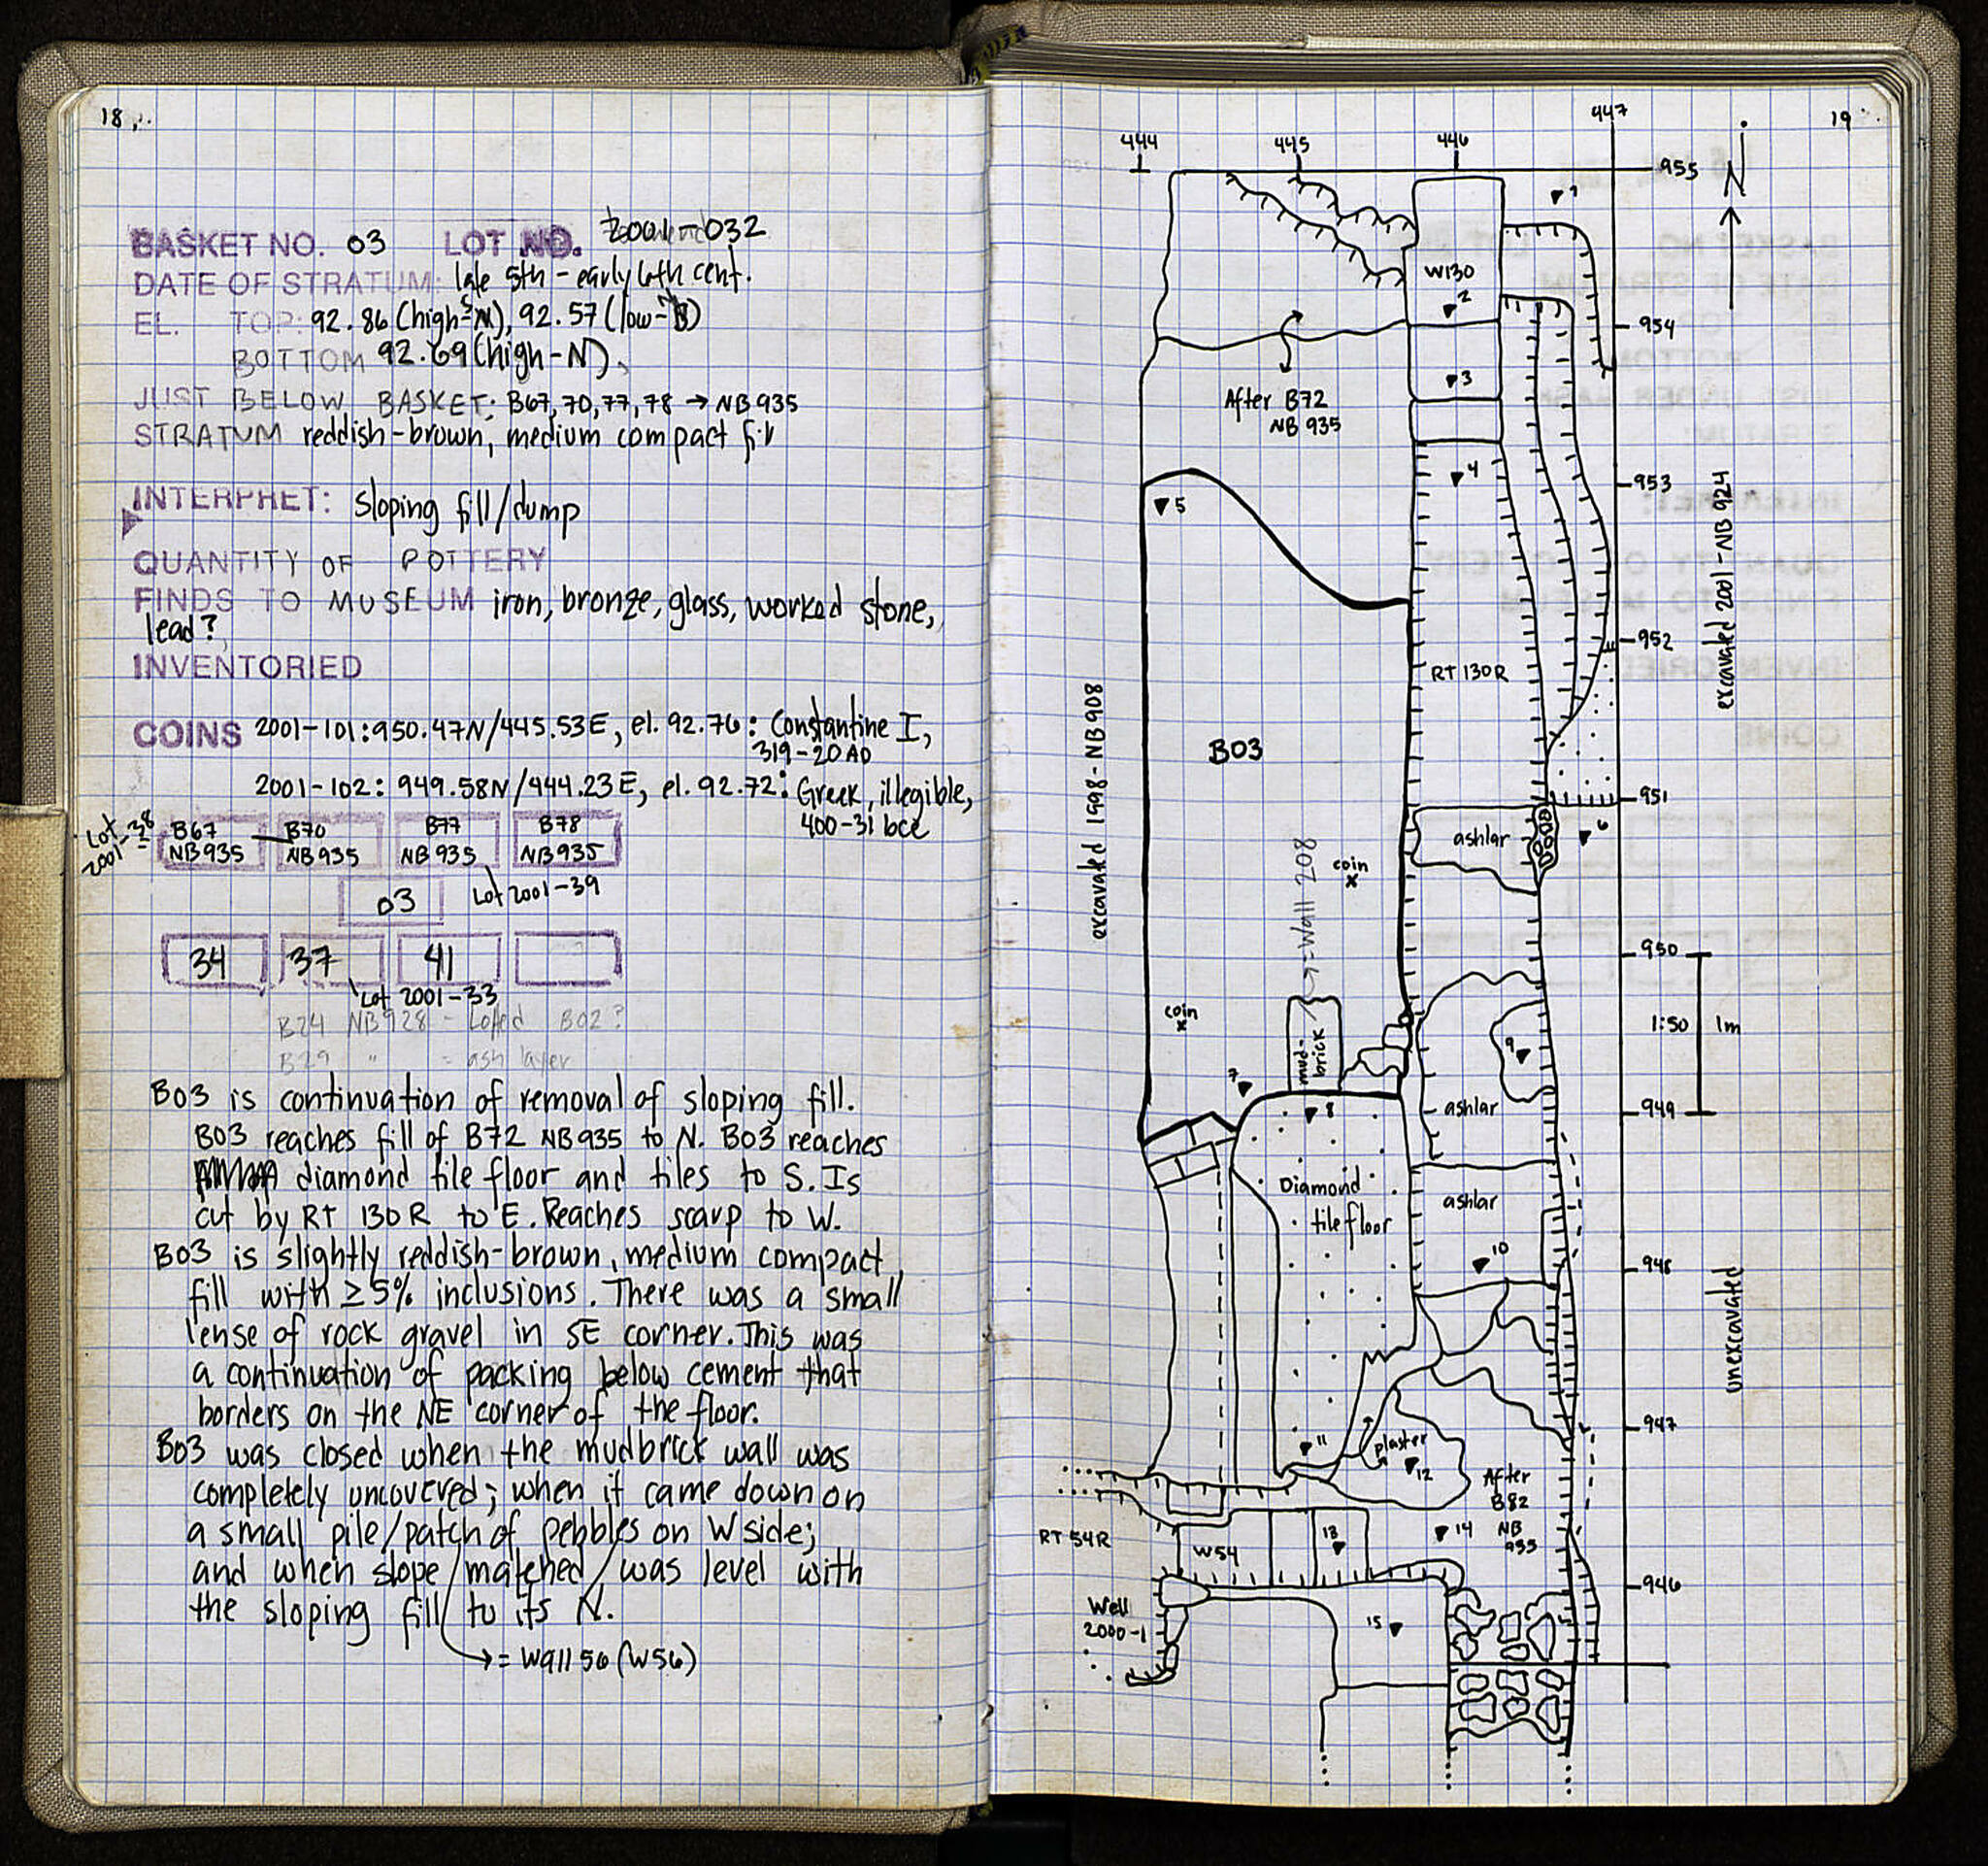 18
BASKET NO. 03 LOT NO. 2001-032
DATE OF STRATUM: late 5th - early 6th cent.
EL. TOP: 92.86 (high-S), 92.57 (low-N)
BOTTOM 92.69 (high-N),
JUST BELOW BASKET: B67, 70, 77, 78 → NB 935
STRATUM reddish-brown, medium compact fill
INTERPRET: sloping fill/dump
QUANTITY OF POTTERY
FINDS TO MUSEUM iron, bronze, glass, worked stone,
lead?
INVENTORIED
COINS 2001-101: 950.47N/445.53E, el. 92.76: Constantine I,
319-20 AD
2001-102: 949.58N/444.23E, el. 92.72: Greek, illegible,
400-31 bce
Lot 2001-38
B67 NB 935
B70 NB 935
B77 NB 935
B78 NB 935
03
Lot 2001-39
34 37 41
Lot 2001-33
B24 NB 928 - Lotted B02?
B29 " = ash layer
B03 is continuation of removal of sloping fill.
B03 reaches fill of B72 NB 935 to N. B03 reaches
diamond tile floor and tiles to S. Is
cut by RT 130R to E. Reaches scarp to W.
B03 is slightly reddish-brown, medium compact
fill with ≥5% inclusions. There was a small
lense of rock gravel in SE corner. This was
a continuation of packing below cement that
borders on the NE corner of the floor.
B03 was closed when the mudbrick wall was
completely uncovered; when it came down on
a small pile/patch of pebbles on W side;
and when slope matched/was level with
the sloping fill to its N.
→ = Wall 56 (W56)
19
444 445 446 447
955
N
1
W130
2
954
After B72
NB 935
3
4
953
5
excavated 2001-NB 924
952
RT 130R
excavated 1998-NB 908
B03
951
ashlar
6
coin
x
= Wall 208
950
1:50 1m
coin
x
mud-
brick
9
7
8
ashlar
949
Diamond
tile floor
ashlar
10
948
unexcavated
947
11
plaster
12
After
B82
NB
935
RT 54R
W54
13
14
946
Well
2000-1
15